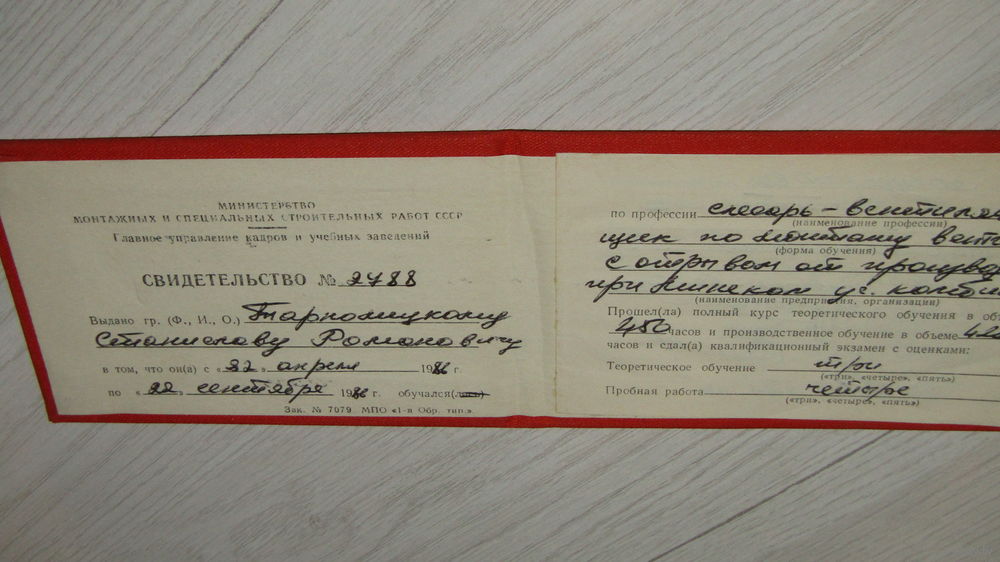 МИНИСТЕРСТВО
МОНТАЖНЫХ И СПЕЦИАЛЬНЫХ СТРОИТЕЛЬНЫХ РАБОТ СССР
Главное управление кадров и учебных заведений
СВИДЕТЕЛЬСТВО № 2788
Выдано гр. (Ф., И., О.)
Станиславу Романовичу
в том, что он(а) с «22» апреля 1986 г.
по «22» сентября 1986 г. обучался(лась)
Зак. № 7079 МПО «1-я Обр. тип.»
по профессии слесарь-вентиляц
(наименование профессии)
щик по монтажу вент
(форма обучения)
с отрывом от производ
при Минском ус. комби
(наименование предприятия, организации)
Прошел(ла) полный курс теоретического обучения в объ
450 часов и производственное обучение в объеме
часов и сдал(а) квалификационный экзамен с оценками:
Теоретическое обучение три
(«три», «четыре», «пять»)
Пробная работа четыре
(«три», «четыре», «пять»)